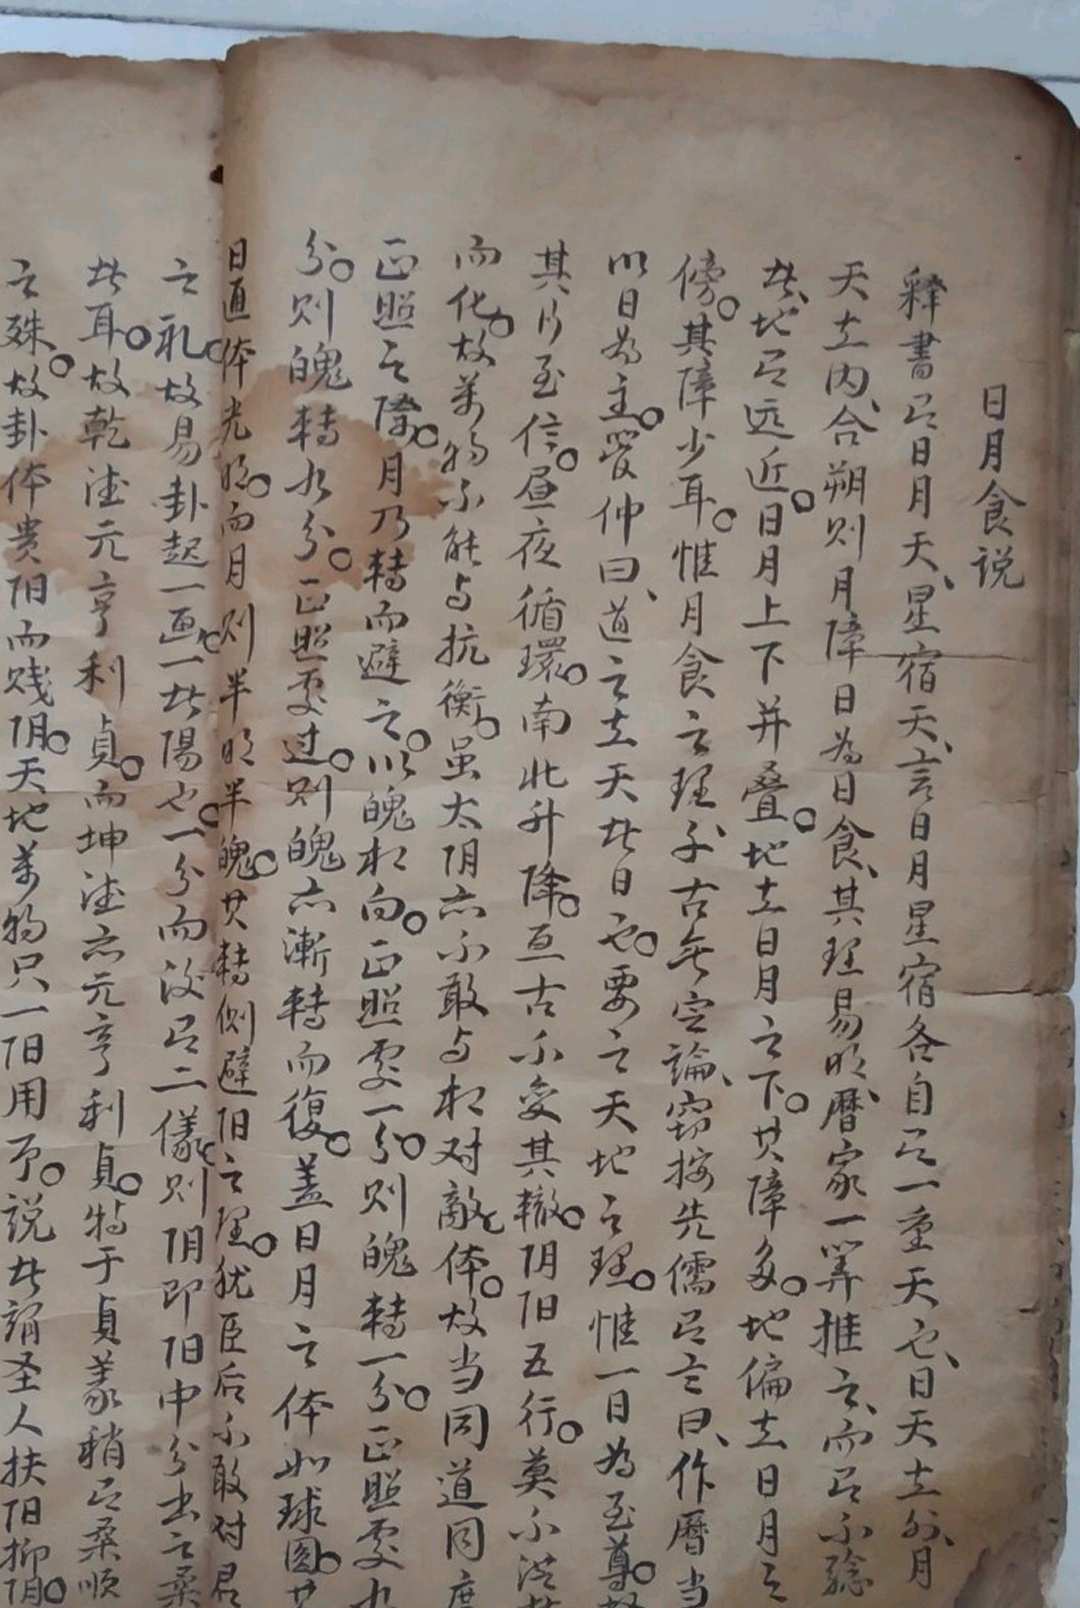 日月食说
释書云日月天、星宿天、言日月星宿各自云一重天也、日天士外、月
天士内、合朔则月障日為日食、其理易明、曆家一筭推之、而云不驗
其地云远近。日月上下并叠。地士日月之下。其障多。地偏士日月之
傍。其障少耳。惟月食之理、千古無定論、窃按先儒云言曰、作曆当
以日為主。管仲曰、道之士天其日也。要之天地之理。惟一日為至尊。
其行至信。昼夜循環。南北升降。亘古不变其轍。阴阳五行。莫不從其
而化。故萬物不能与抗衡。虽太阴亦不敢与相对敵体。故当同道同度
正照之際。月乃轉而避之。以魄相向。正照零一分。则魄轉一分。正照零九
分。则魄轉九分。正照零过。则魄亦漸轉而復。盖日月之体如球圆。其
日通体光明。而月则半明半魄。其轉側避阳之理。犹臣后不敢对君
之礼。故易卦起一画。一其陽也。一分而後云二儀。则阴即阳中分出之柔
其耳。故乾德元亨利貞。而坤德亦元亨利貞。特于貞義稍云柔順
之殊。故卦体贵阳而贱阴。天地萬物只一阳用事。说其謂圣人扶阳抑阴。